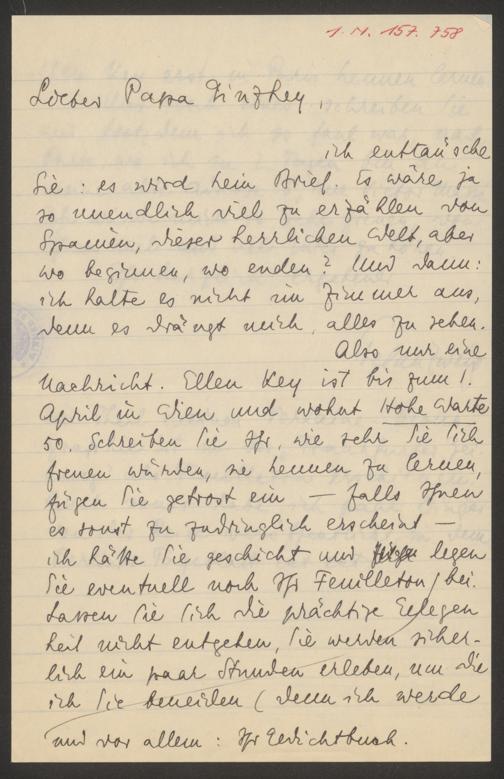 1. N. 157.758
Lieber Papa Ginzkey,
ich enttäusche
Sie: es wird kein Brief. Es wäre ja
so unendlich viel zu erzählen von
Spanien, dieser herrlichen Welt, aber
wo beginnen, wo enden? Und dann:
ich halte es nicht im Zimmer aus,
denn es drängt mich, alles zu sehen.
Also nur eine
Nachricht. Ellen Key ist bis zum 1.
April in Wien und wohnt Hohe Warte
50. Schreiben Sie Ihr, wie sehr Sie sich
freuen würden, sie kennen zu lernen,
fügen Sie getrost ein — falls Ihnen
es sonst zu zudringlich erscheint —
ich hätte Sie geschickt und legen
Sie eventuell noch Ihr Feuilleton bei.
Lassen Sie sich die prächtige Gelegen
heit nicht entgehen, Sie werden sicher-
lich ein paar Stunden erleben, um die
ich Sie beneide (denn ich werde
und vor allem: Ihr Gedichtbuch.